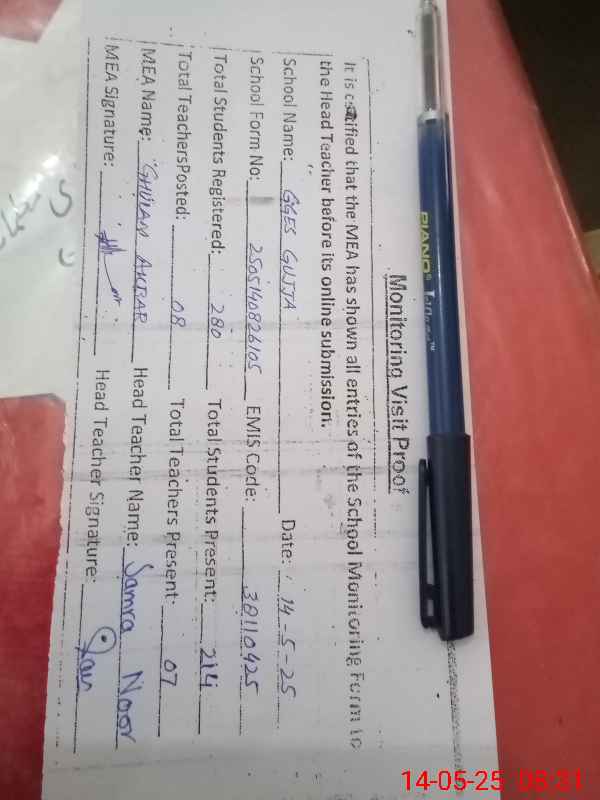 Monitoring Visit Proof
It is certified that the MEA has shown all entries of the School Monitoring Form to
the Head Teacher before its online submission.
School Name: GGES GUJJA Date: 14-5-25
School Form No: 2505140826105 EMIS Code: 38110425
Total Students Registered: 280 Total Students Present: 214
Total TeachersPosted: 08 Total Teachers Present: 07
MEA Name: GHULAM AKBAR Head Teacher Name: Samra Noor
MEA Signature: Head Teacher Signature:
PIANO
14-05-25 08:31